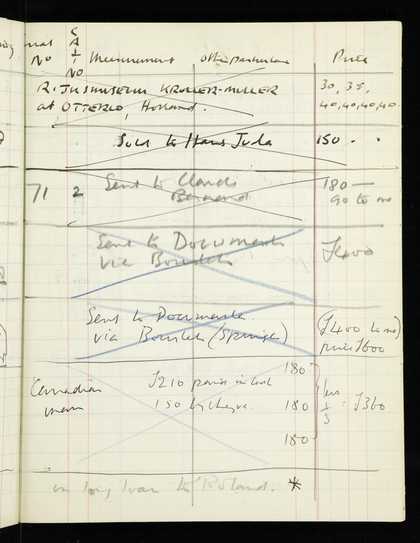 No CAT NO Measurement Other particulars Price
R. IJKSMUSEUM KROLLER-MULLER 30, 35,
at OTTERLO, Holland. 40, 40, 40, 40
Sold to Hans Juda 150 . .
71 2 Sent to Claude 180 —
Bernard 90 to me
Sent to Documenta £400
via Bowdlitch
Sent to Documenta (£400 to me)
via (Spring) price £600
180
Canadian £210 paid in cash
man 150 by cheque 180 less 1/3 = £360
180
on long loan to Roland. *